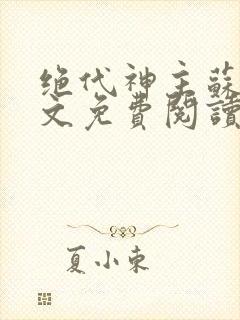 绝代神主蘇
文免費閱讀
夏小束